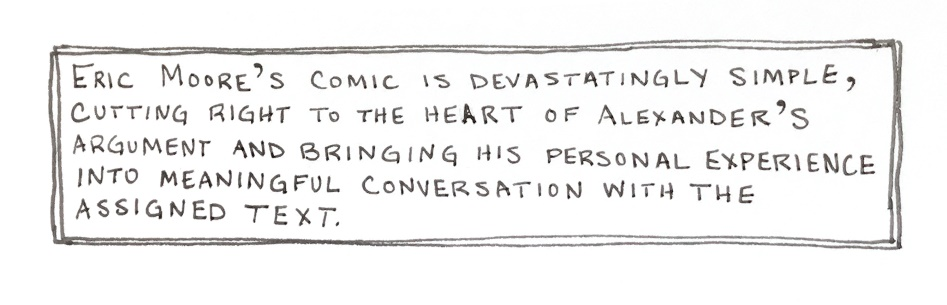 ERIC MOORE'S COMIC IS DEVASTATINGLY SIMPLE,
CUTTING RIGHT TO THE HEART OF ALEXANDER'S
ARGUMENT AND BRINGING HIS PERSONAL EXPERIENCE
INTO MEANINGFUL CONVERSATION WITH THE
ASSIGNED TEXT.